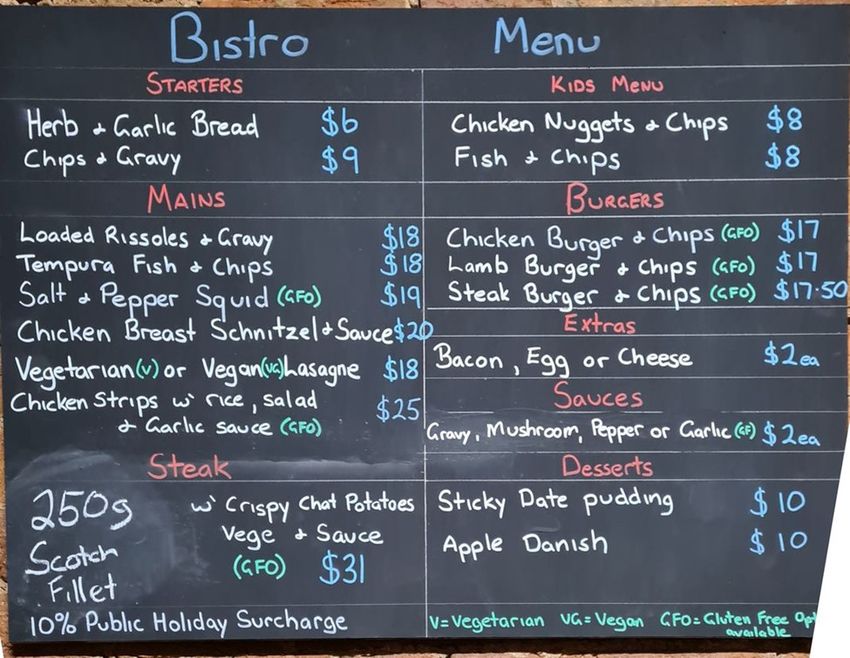 Bistro Menu
STARTERS
Herb & Garlic Bread $6
Chips & Gravy $9
MAINS
Loaded Rissoles & Gravy $18
Tempura Fish & Chips $18
Salt & Pepper Squid (GFO) $19
Chicken Breast Schnitzel & Sauce $20
Vegetarian (V) or Vegan (VG) Lasagne $18
Chicken Strips w' rice, salad
& Garlic sauce (GFO) $25
Steak
250g
Scotch
Fillet
w' Crispy Chat Potatoes
Vege & Sauce
(GFO) $31
10% Public Holiday Surcharge
KIDS MENU
Chicken Nuggets & Chips $8
Fish & Chips $8
BURGERS
Chicken Burger & Chips (GFO) $17
Lamb Burger & Chips (GFO) $17
Steak Burger & Chips (GFO) $17.50
Extras
Bacon, Egg or Cheese $2ea
Sauces
Gravy, Mushroom, Pepper or Garlic (GF) $2ea
Desserts
Sticky Date pudding $10
Apple Danish $10
V=Vegetarian VG=Vegan GFO=Gluten Free
available